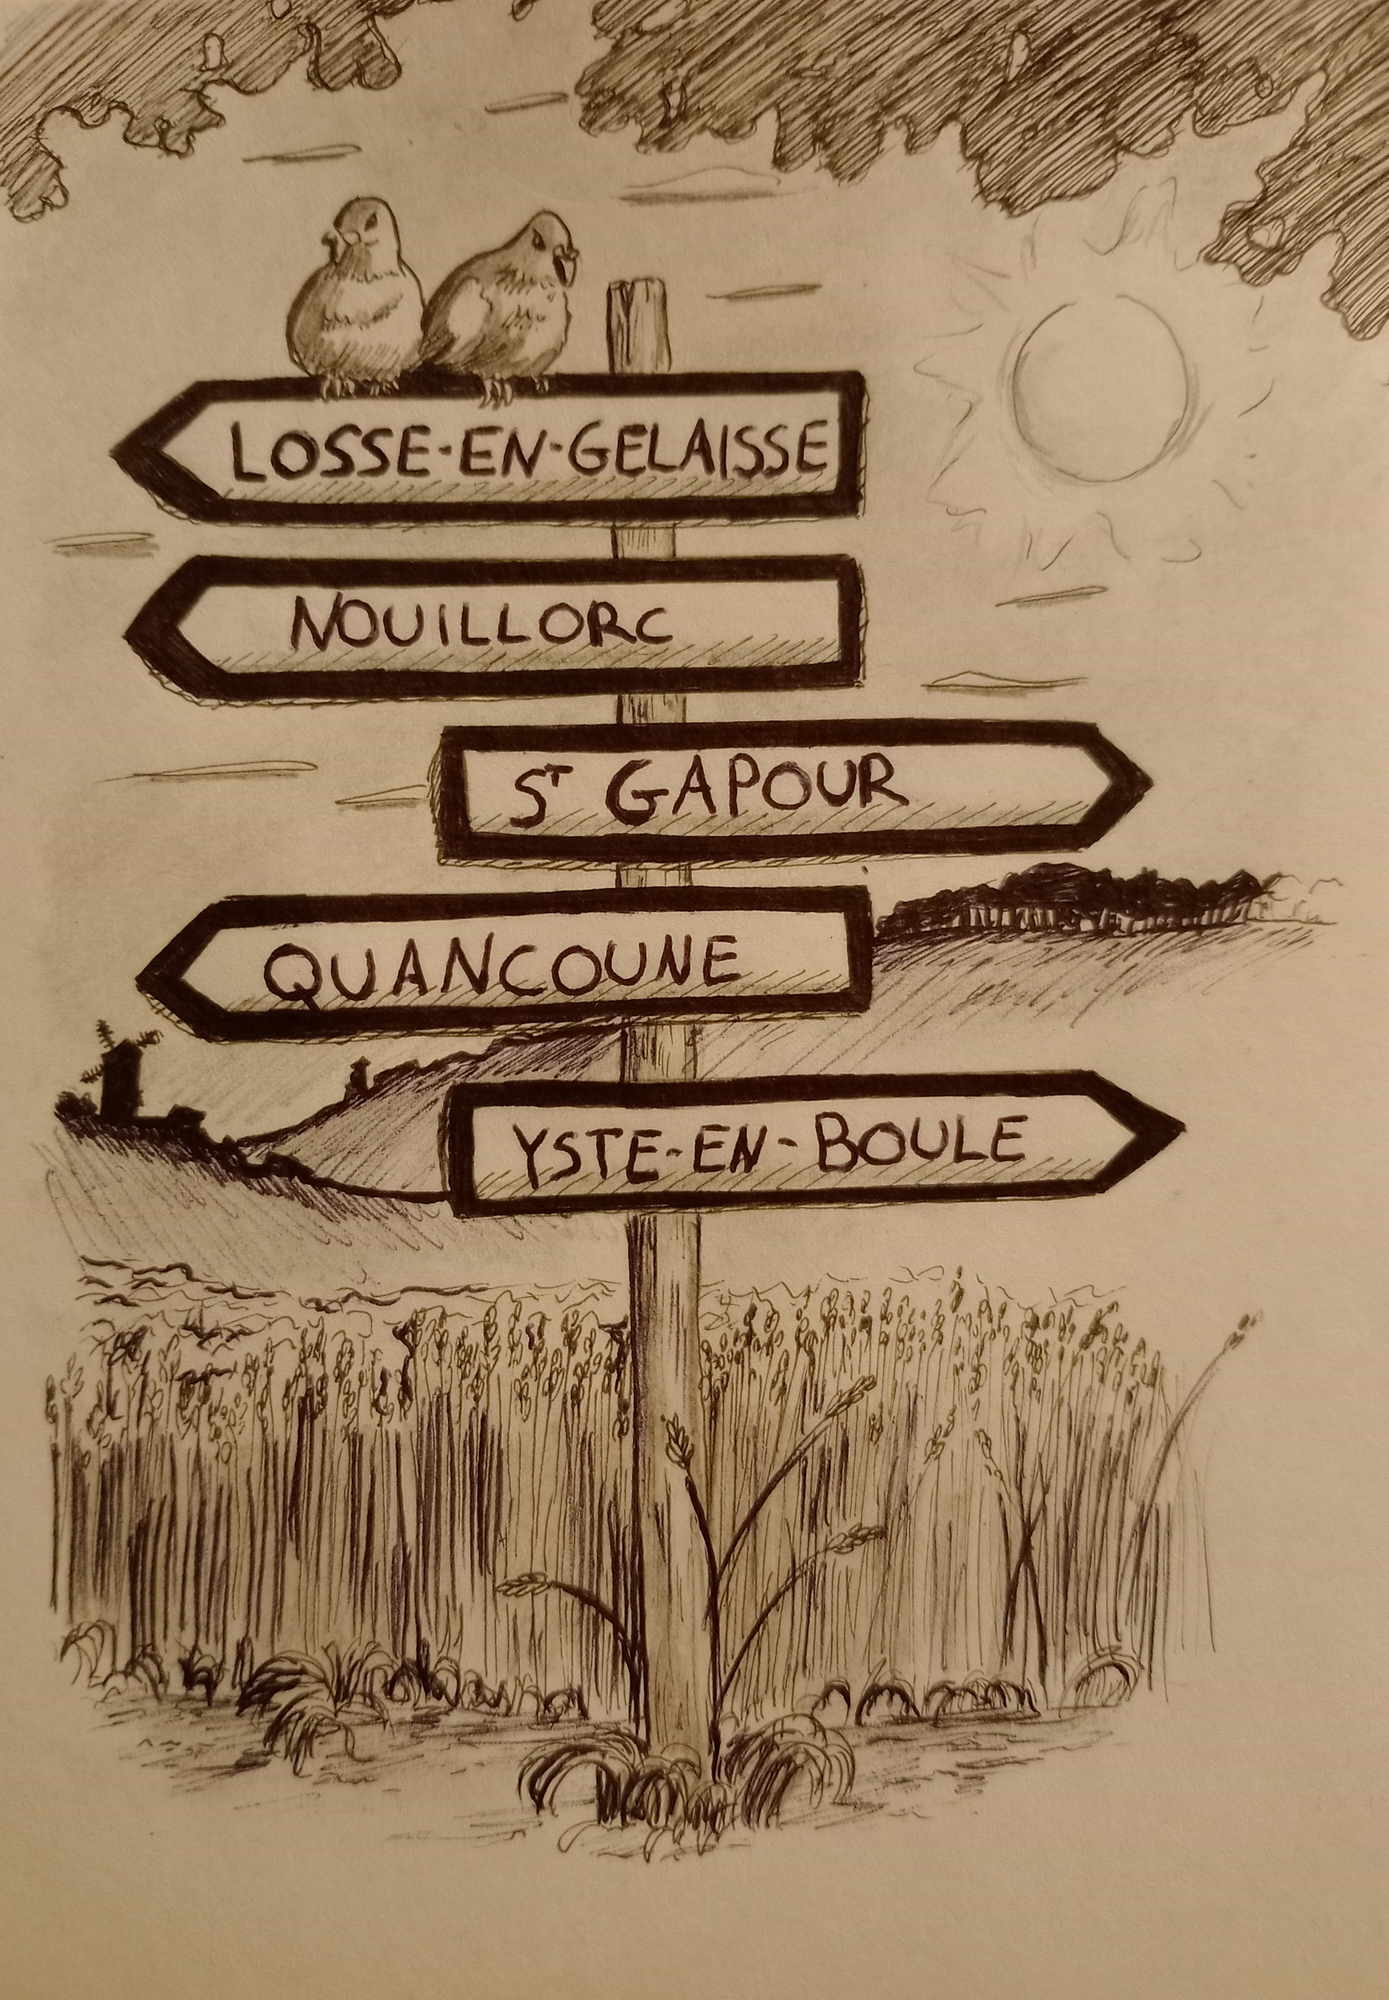 LOSSE-EN-GELAISSE
NOUILLORC
ST GAPOUR
QUANCOUNE
YSTE-EN-BOULE